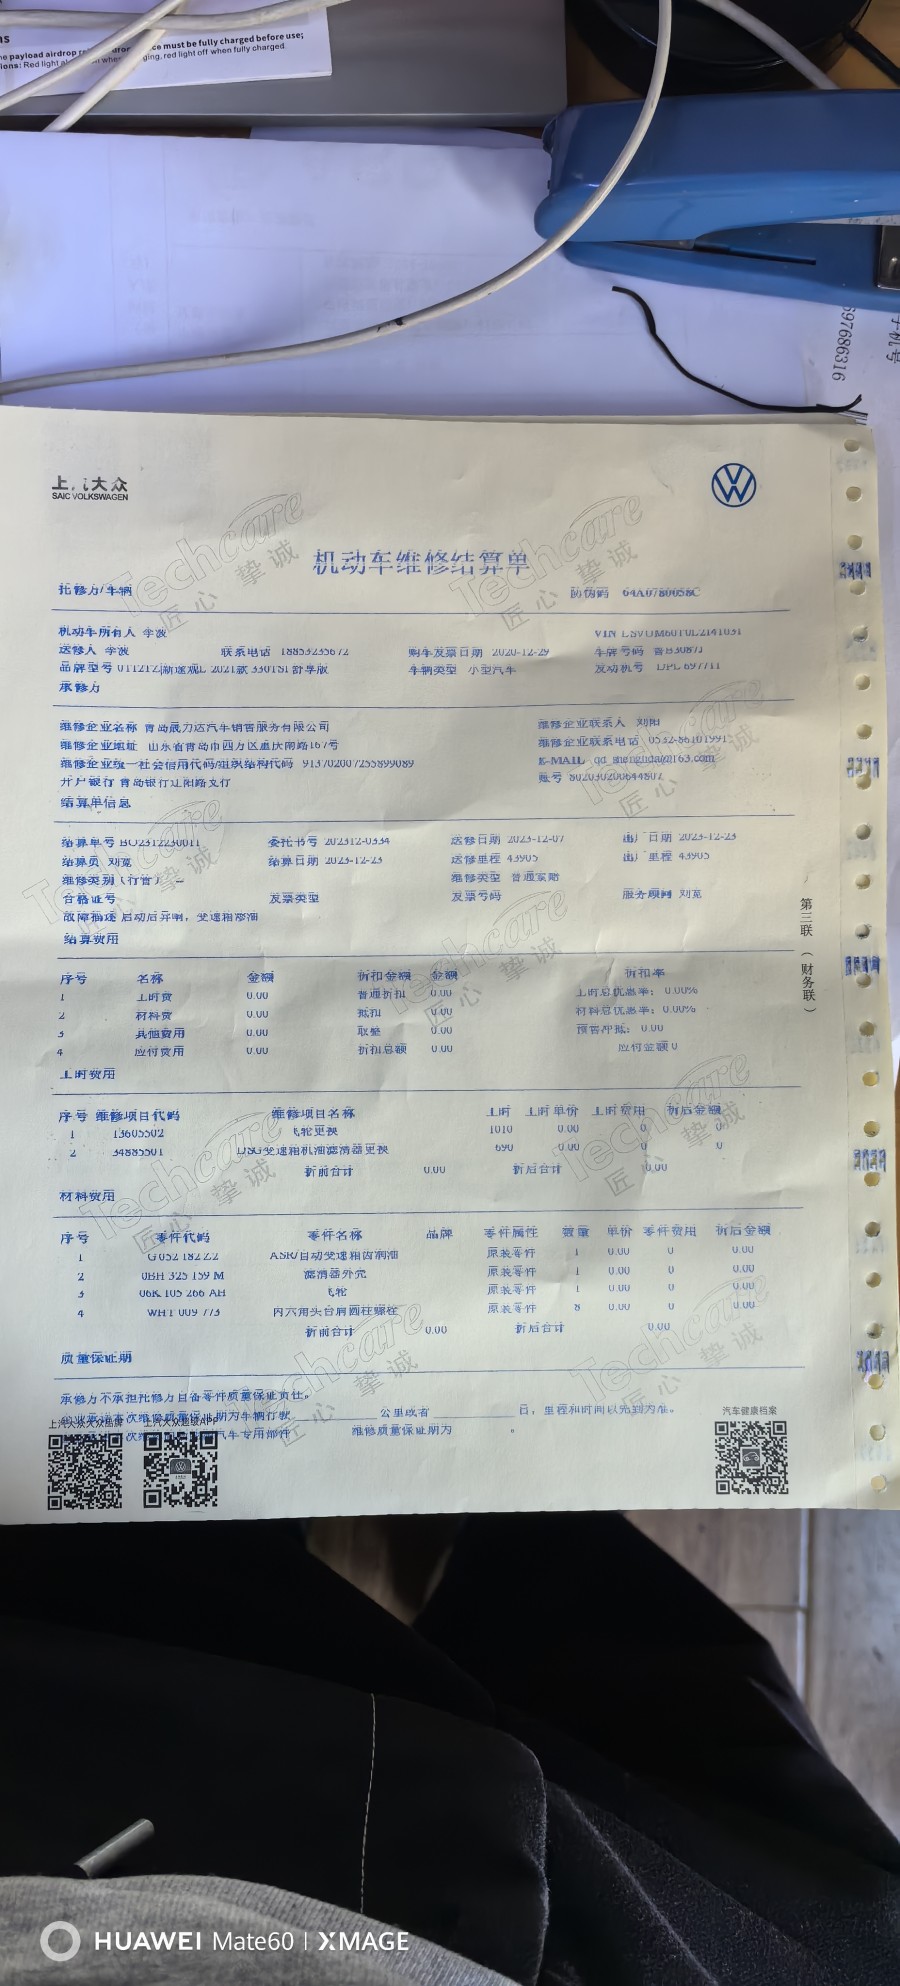 ce must be fully charged before use;
e payload airdrop
ions: Red light
ging, red light off when fully charged.
697686316
手机号
上汽大众
SAIC VOLKSWAGEN
机动车维修结算单
托修方/车辆
防伪码 64A0780058C
机动车所有人 李波
VIN
送修人 李波 联系电话 18853235672 购车发票日期 2020-12-29 车牌号码
品牌型号 新途观L 2021款 330TSI 舒享版 车辆类型 小型汽车 发动机号
承修方
维修企业名称 青岛晟力达汽车销售服务有限公司 维修企业联系人 刘阳
维修企业地址 山东省青岛市四方区重庆南路167号 维修企业联系电话
维修企业统一社会信用代码/组织结构代码 913702007255899089 E-MAIL
开户银行 青岛银行辽阳路支行 账号 802030200644807
结算单信息
结算单号 委托书号 202312-0334 送修日期 2023-12-07 出厂日期 2023-12-23
结算员 刘宽 结算日期 2023-12-23 送修里程 43905 出厂里程 43905
维修类别（行管） 维修类型 普通索赔
合格证号 发票类型 发票号码 服务顾问 刘宽
故障描述 启动后异响，变速箱渗油
结算费用
序号 名称 金额 折扣金额 金额 折扣率
1 工时费 0.00 普通折扣 0.00 工时总优惠率：0.00%
2 材料费 0.00 抵扣 0.00 材料总优惠率：0.00%
3 其他费用 0.00 取整 0.00 预售冲抵：0.00
4 应付费用 0.00 折扣总额 0.00 应付金额 0
工时费用
序号 维修项目代码 维修项目名称 工时 工时单价 工时费用 折后金额
1 13605502 飞轮更换 1010 0.00 0 0
2 34885501 DSG变速箱机油滤清器更换 690 0.00 0 0
折前合计 0.00 折后合计 0.00
材料费用
序号 零件代码 零件名称 品牌 零件属性 数量 单价 零件费用 折后金额
1 G 052 182 Z2 ASR/自动变速箱齿润油 原装零件 1 0.00 0 0.00
2 0BH 325 159 M 滤清器外壳 原装零件 1 0.00 0 0.00
3 06K 105 266 AH 飞轮 原装零件 1 0.00 0 0.00
4 WHT 009 773 内六角头台肩圆柱螺栓 原装零件 8 0.00 0 0.00
折前合计 0.00 折后合计 0.00
质量保证期
承修方不承担托修方自备零件质量保证责任。
本次维修质量保证期为车辆行驶 公里或者 日，里程和时间以先到为准。
汽车专用部件 维修质量保证期为 。
上汽大众大众品牌
上汽大众超级APP
汽车健康档案
第三联（财务联）
Techcare
匠心 挚诚
HUAWEI Mate60 | XMAGE